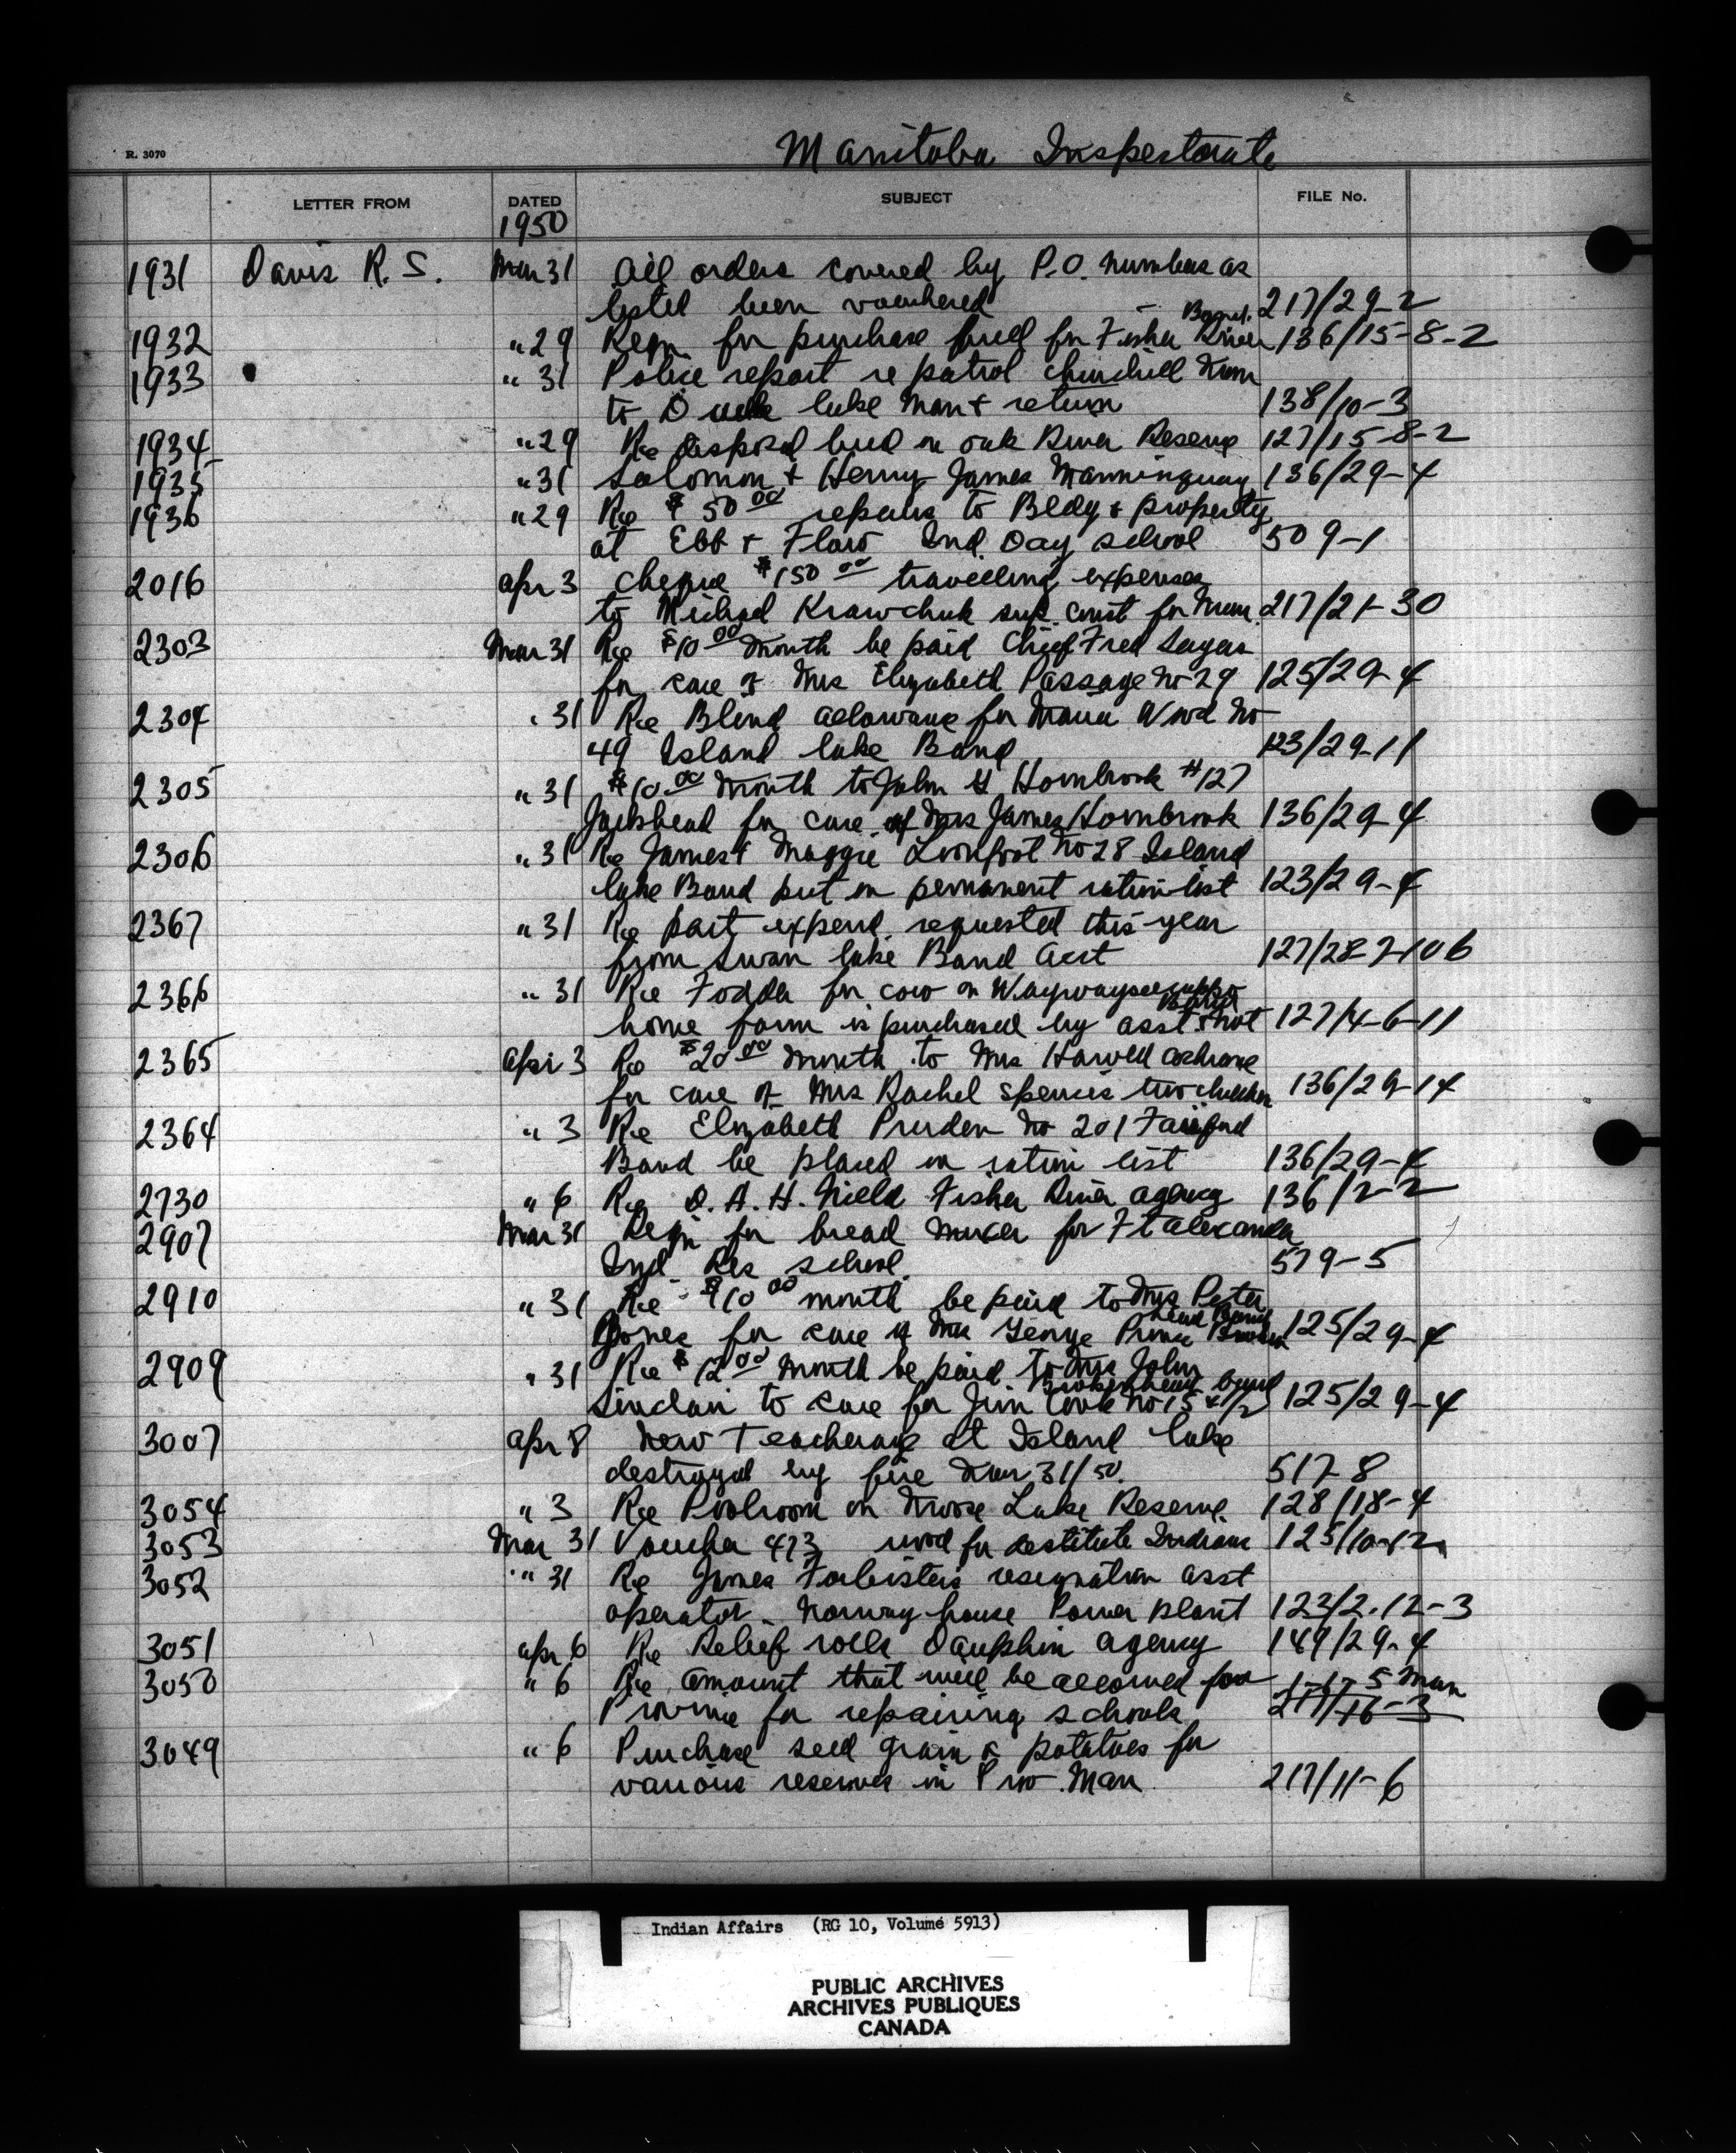 Manitoba Inspectorate
R. 3070
LETTER FROM DATED SUBJECT FILE No.
1950
1931 Davis R. S. Mar 31 All orders covered by P.O. numbers as
listed been vouchered 217/29-2
1932 " 29 Reqn for purchase for Fisher River Band. 136/15-8-2
1933 " 31 Police report re patrol Churchill Man
to Lake Man & return 138/10-3
1934 " 29 Re disposal on Oak River Reserve 127/15-8-2
1935 " 31 Solomon & Henry James Manninguay 136/29-4
1936 " 29 Re $50.00 repairs to Bldg & property
at Ebb & Flow Ind. Day school 509-1
2016 Apr 3 Cheque $150.00 travelling expenses
to Michael Krawchuk sup. const for Man. 217/21-30
2303 Mar 31 Re $10.00 month be paid Chief Fred
for care of Mrs Elizabeth Passage No 29 125/29-4
2304 " 31 Re Blind allowance for Wood No
49 Island Lake Band 123/29-11
2305 " 31 $10.00 month to John H Hornbrook #127
Jackhead for care of Mrs James Hornbrook 136/29-4
2306 " 31 Re James & Maggie Loonfoot No 28 Island
Lake Band put on permanent ration list 123/29-4
2367 " 31 Re part expend. requested this year
from Swan Lake Band Acct 127/28-7-106
2366 " 31 Re Fodder for cow on Waywayseecappo Band
home farm is purchased by asst 127/4-6-11
2365 Apr 3 Re $20.00 month to Mrs Cochrane
for care of Mrs Rachel Spence's two children 136/29-14
2364 " 3 Re Elizabeth Pruden No 201 Fairford
Band be placed on ration list 136/29-4
2730 " 6 Re A. H. Nield Fisher River Agency 136/2-2
2907 Mar 31 Reqn for bread mixer for Ft Alexander
Ind. Res school 579-5
2910 " 31 Re $10.00 month be paid to Mrs Peter
Jones for care of Mrs George Prince Brokenhead Band 125/29-4
2909 " 31 Re $12.00 month be paid to Mrs John
Sinclair to care for Jim Cook No 15 Brokenhead Band 125/29-4
3007 Apr 8 New Teacherage at Island Lake
destroyed by fire Mar 31/50. 517-8
3054 " 3 Re Poolroom on Moose Lake Reserve. 128/18-4
3053 Mar 31 Voucher 473 wood for destitute Indians 125/10-12
3052 " 31 Re James Forbister's resignation asst
operator - Norway House Power plant 123/2.12-3
3051 Apr 6 Re Relief rolls Dauphin Agency 149/29-4
3050 " 6 Re amount that will be allowed for 1-17-5 Man
Province for repairing schools 217/16-3
3049 " 6 Purchase seed grain & potatoes for
various reserves in Prov. Man 217/11-6
Indian Affairs (RG 10, Volume 5913)
PUBLIC ARCHIVES
ARCHIVES PUBLIQUES
CANADA